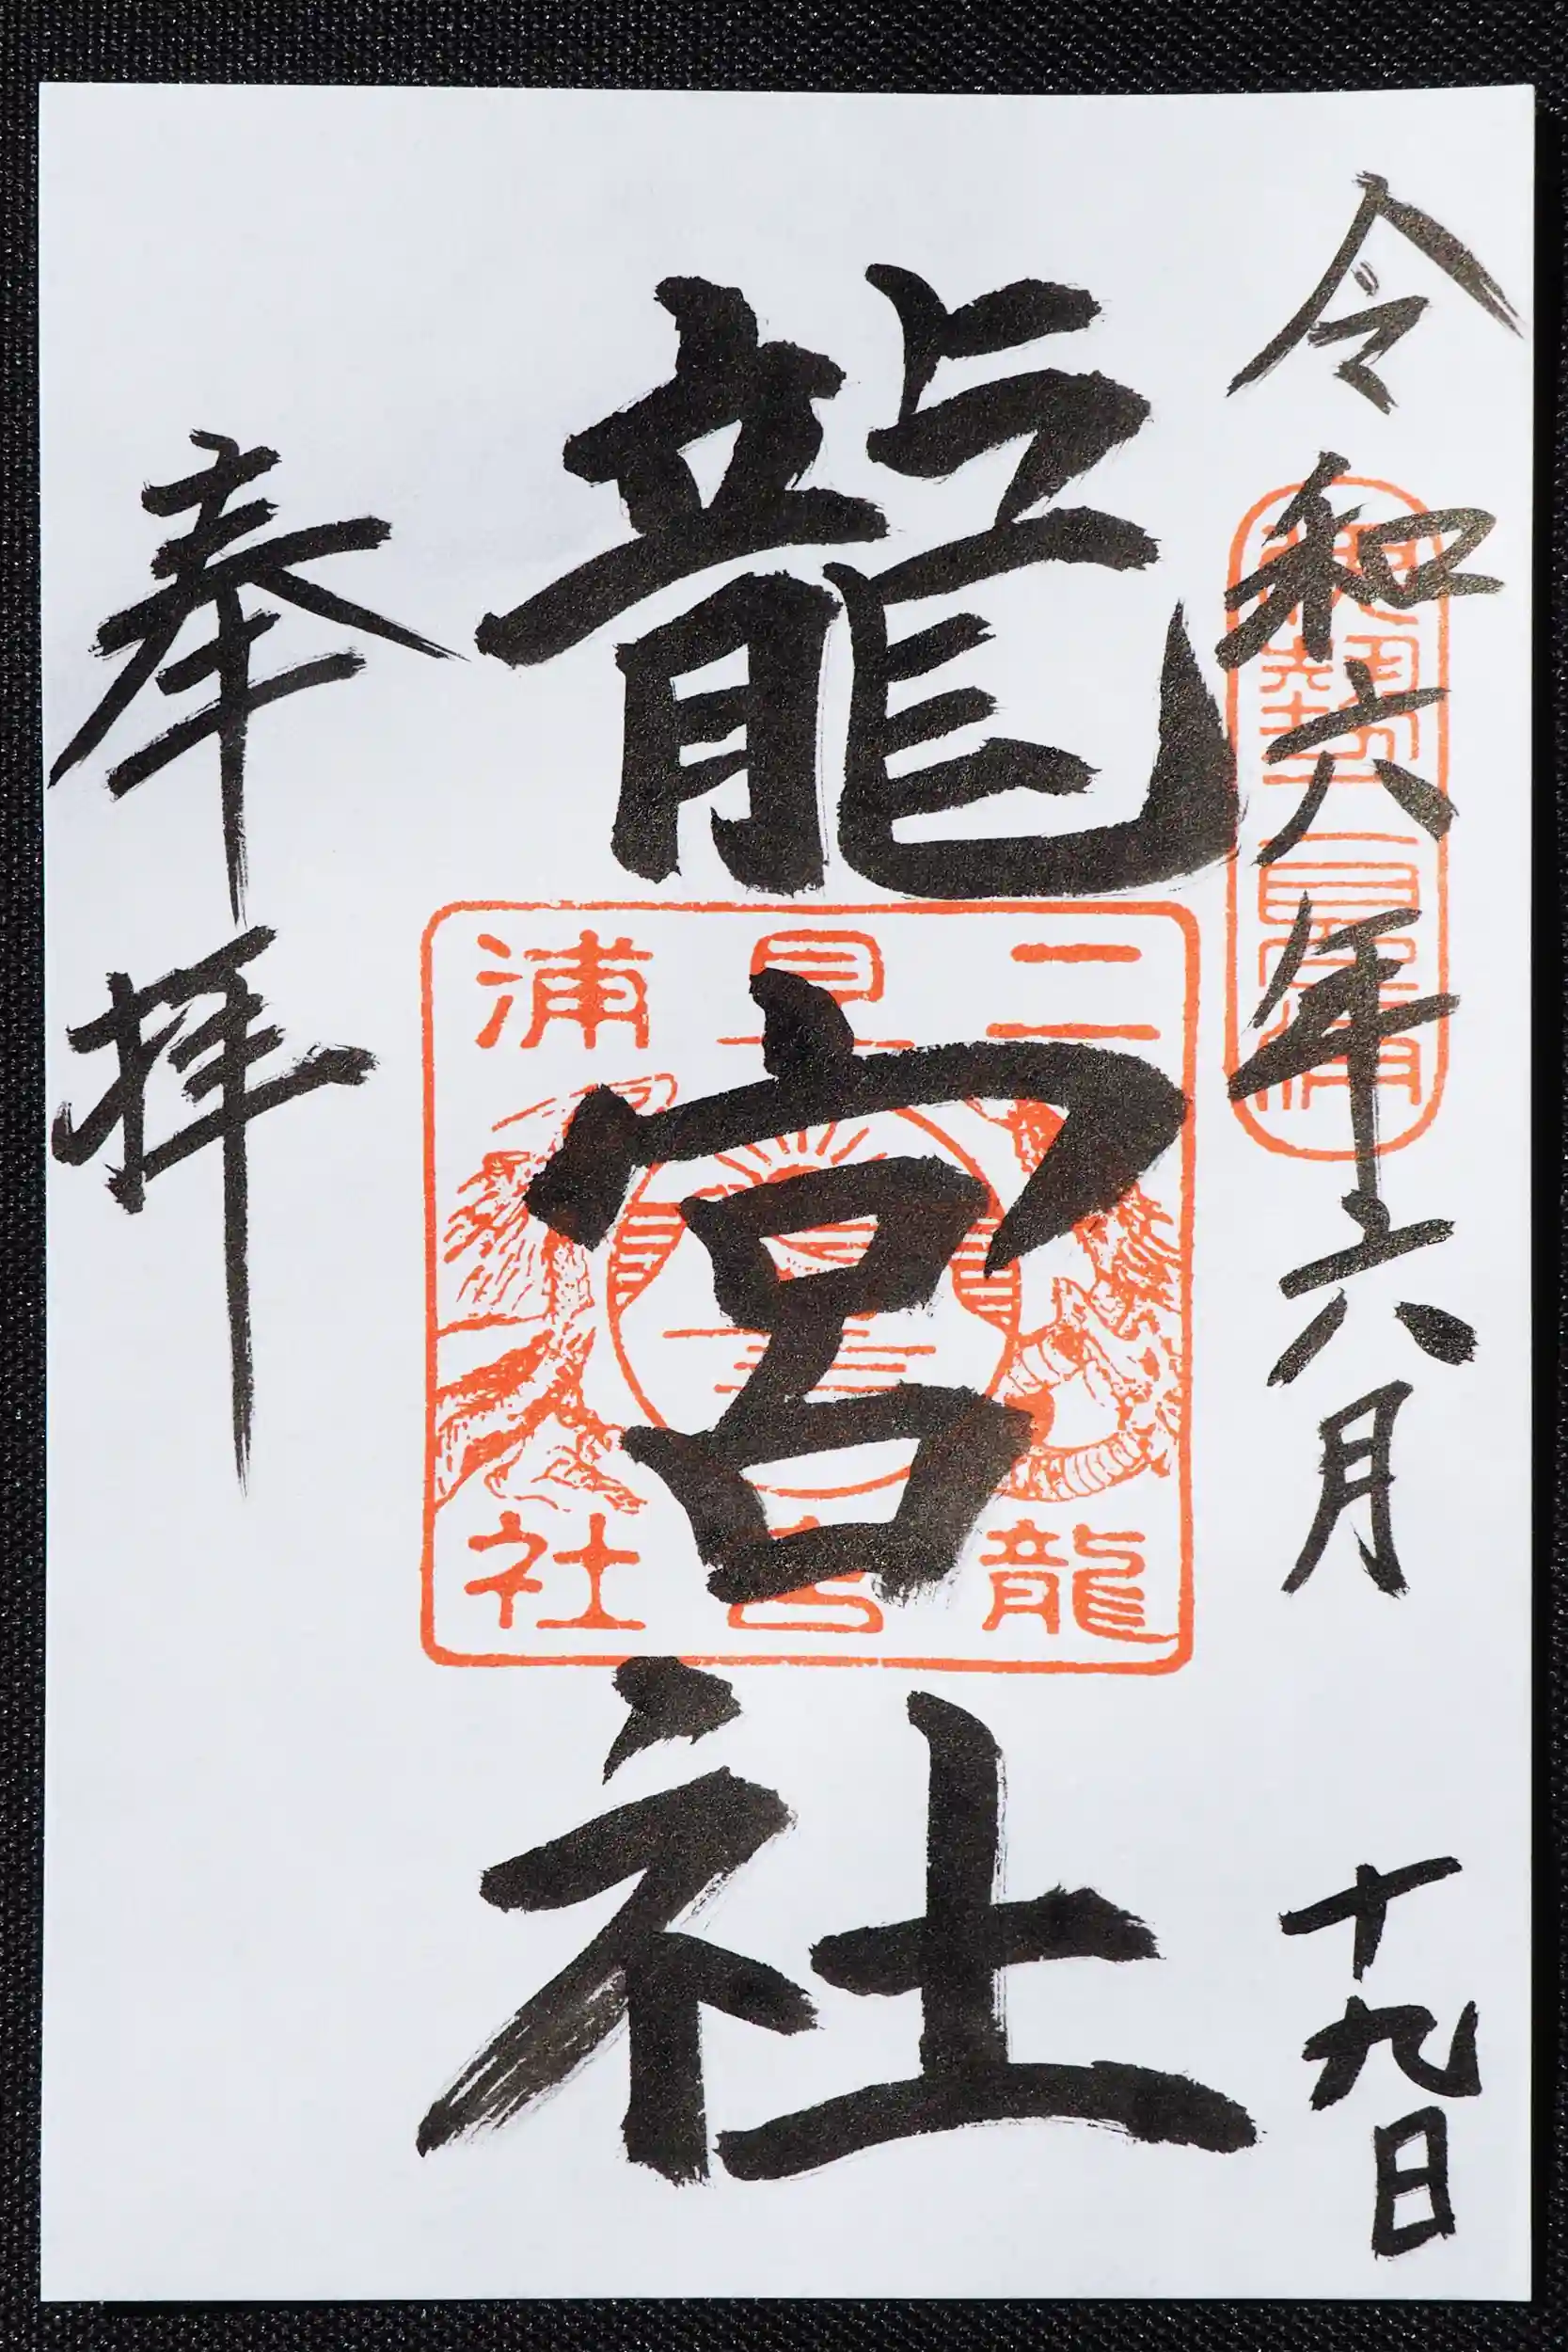 令和六年六月十九日
龍宮社
奉拝
二見浦
龍宮社